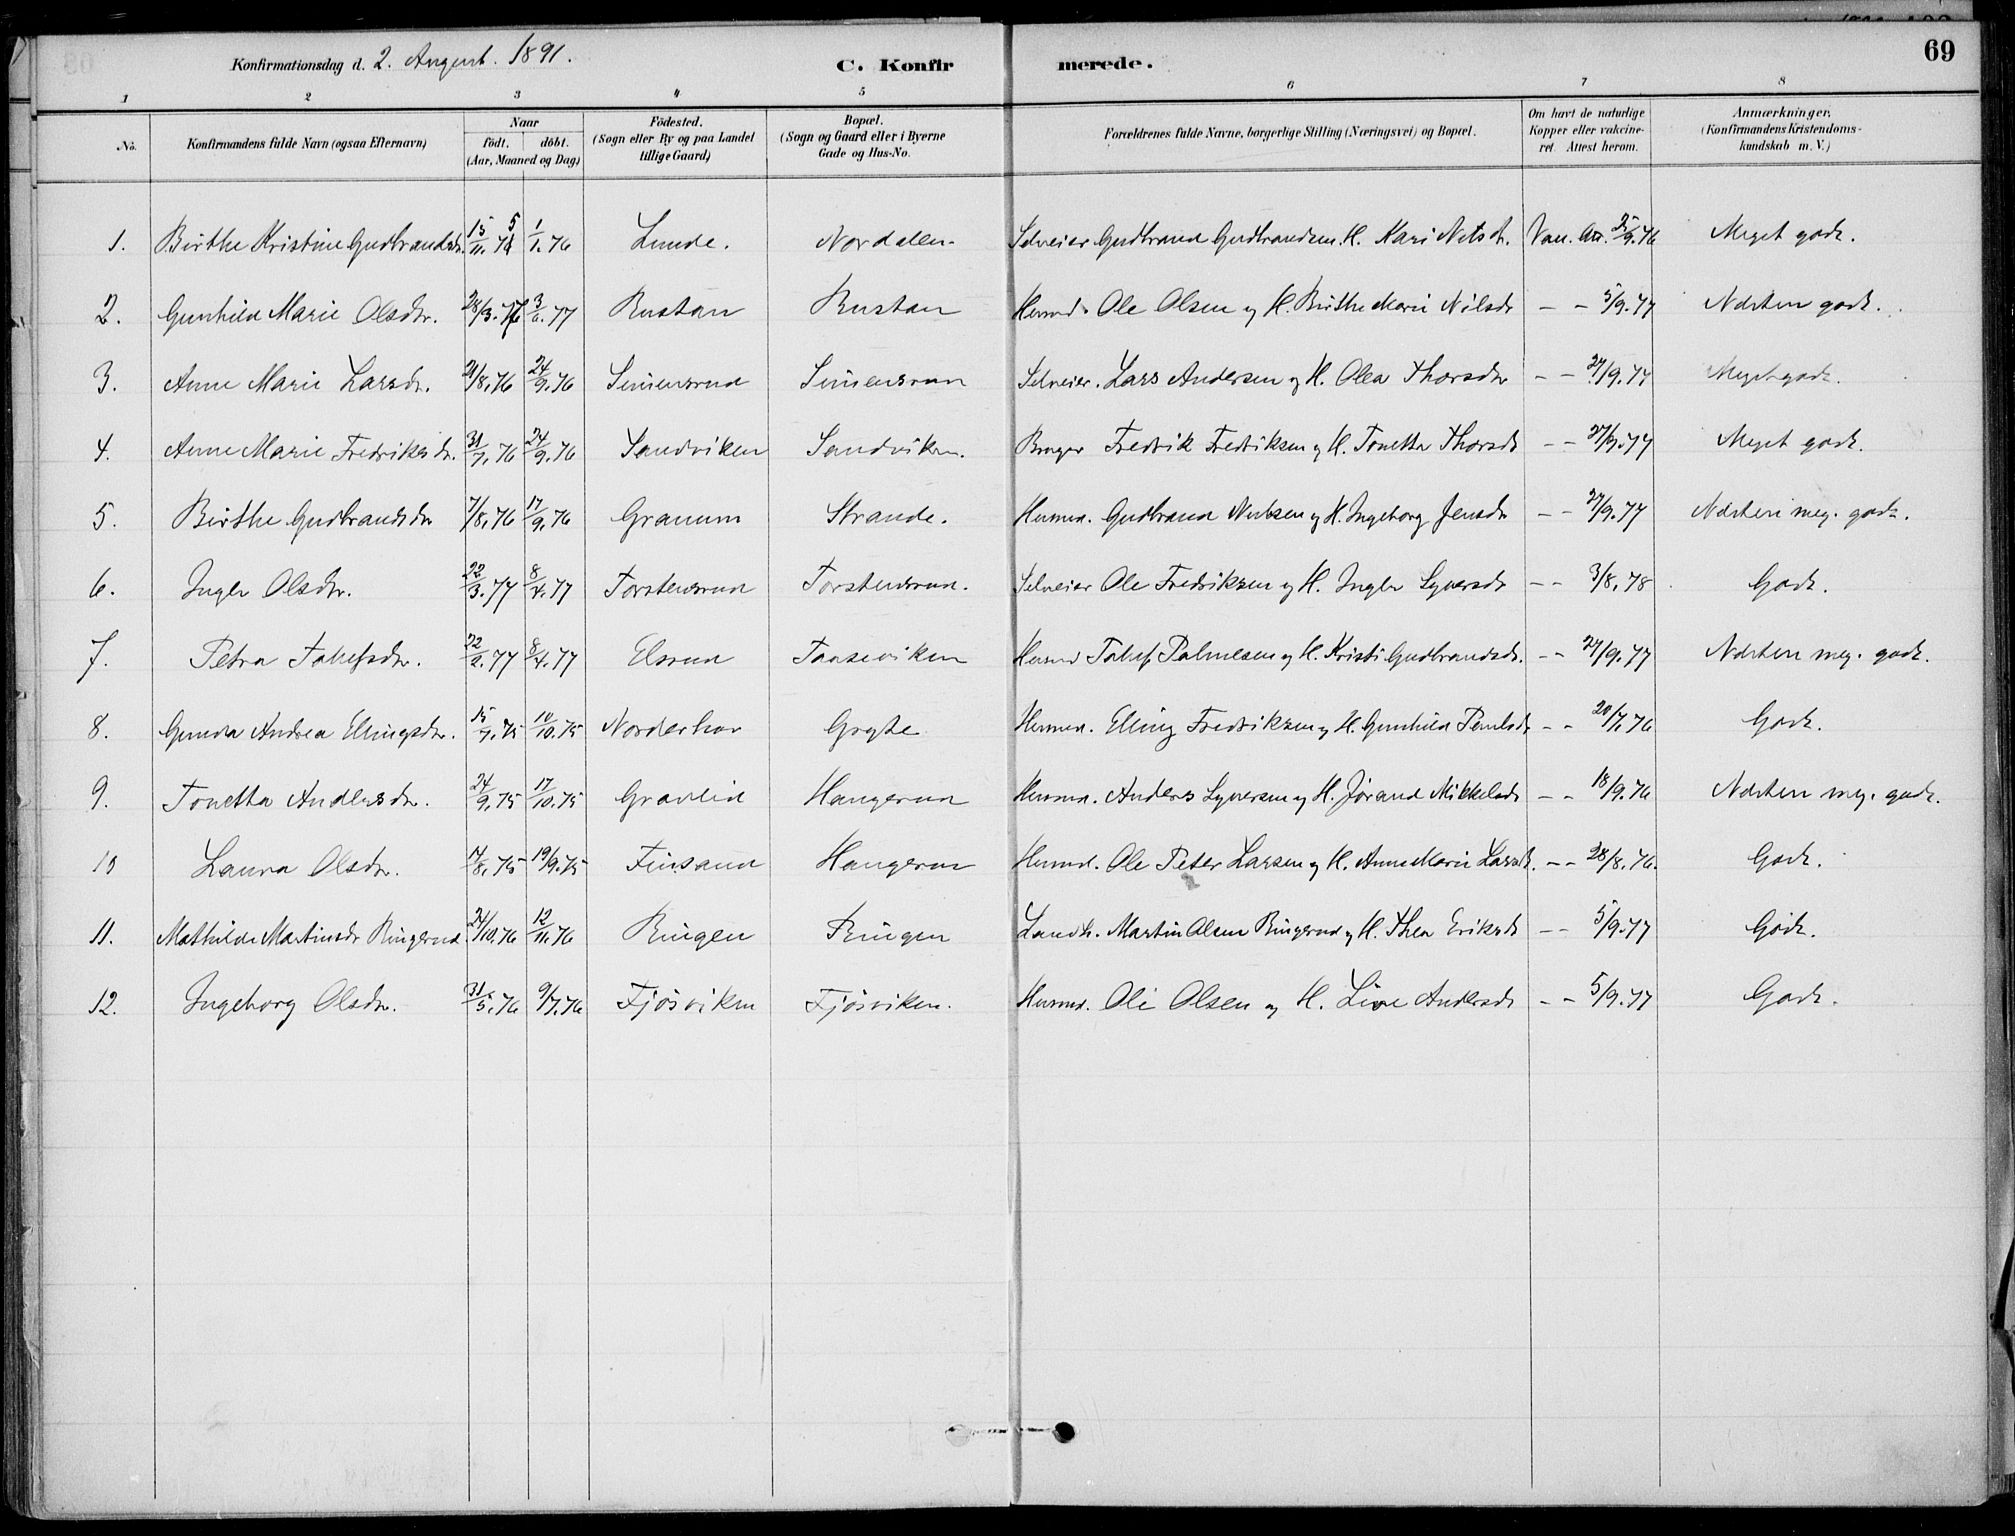 69
Konfirmationsdag d. 2. August. 1891.
C. Konfirmerede.
1 2 3 4 5 6 7 8
No. Konfirmandens fulde Navn (ogsaa Efternavn) Naar födt. döbt. (Aar, Maaned og Dag) Födested. (Sogn eller By og paa Landet tillige Gaard) Bopæl. (Sogn og Gaard eller i Byerne Gade og Hus-No. Forældrenes fulde Navne, borgerlige Stilling (Næringsvei) og Bopæl. Om havt de naturlige Kopper eller vakcineret. Attest herom. Anmærkninger. (Konfirmandens Kristendomskundskab m. V.)
1. Birthe Kristine Gudbrandsdr. 15/11.75 1/1.76 Lunde. Norddalen. Selveier Gudbrand Gudbrandsen. H. Kari Nilsdr. Vac. Att. 25/9.76 Meget godt.
2. Gunhild Marie Olsdtr. 28/3.76 3/6.77 Rustan Rustan Husmd. Ole Olsen og H. Birthe Marie Nilsdr – – 5/9.77 Næsten godt.
3. Anne Marie Larsdr. 21/8.76 24/9.76 Simensrud Simensrud Selveier. Lars Andersen og H. Olea Thorsdr – – 27/9.77 Meget godt.
4. Anne Marie Fredriksdr. 31/7.76 24/9.76 Sandviken Sandviken. Bruger Fredrik Fredriksen og H. Tonetta Thorsdr – – 27/9.77 Meget godt.
5. Birthe Gudbrandsdr 7/8.76 17/9.76 Granum Strande. Husmd. Gudbrand Nielsen og H. Ingeborg Jensdr – – 27/9.77 Næsten meg. godt.
6. Ingler Olsdtr. 22/3.77 8/4.77 Torstensrud Torstensrud. Selveier Ole Fredriksen og H. Ingler Syversdr – – 3/8.78 Godt.
7. Petra Tolufsdr. 22/2.77 8/4.77 Elsrud Taaseviken Husmd Toluf Palmesen og H. Kristi Gudbrandsdr. – – 27/9.77 Næsten meg. godt.
8. Gunda Andrea Ellingsdr. 15/9.75 10/10.75 Norderhov Grøjte Husmd. Elling Fredriksen og H. Gunhild Poulsdr – – 20/7.76 Godt.
9. Tonetta Andersdr. 24/9.75 17/10.75 Gravlid Haugerud Husmd. Anders Syversen og H. Jørand Mikkelsdr – – 18/9.76 Næsten meg. godt.
10 Laura Olsdr. 14/8.75 19/9.75 Finsand Haugerud Husmd. Ole Peter Larsen og H. Anne Marie Larsdr. – – 28/8.76. Godt.
11. Mathilde Martinsdr Ringerud 24/10.76 12/11.76 Ringen Ringen Landh. Martin Olsen Ringerud og H. Thea Eriksdr – – 5/9.77 Godt.
12. Ingeborg Olsdr. 31/5.76 9/7.76 Fjösviken Fjösviken. Husmd. Ole Olsen og H. Live Andersdr – – 5/9.77 Godt.